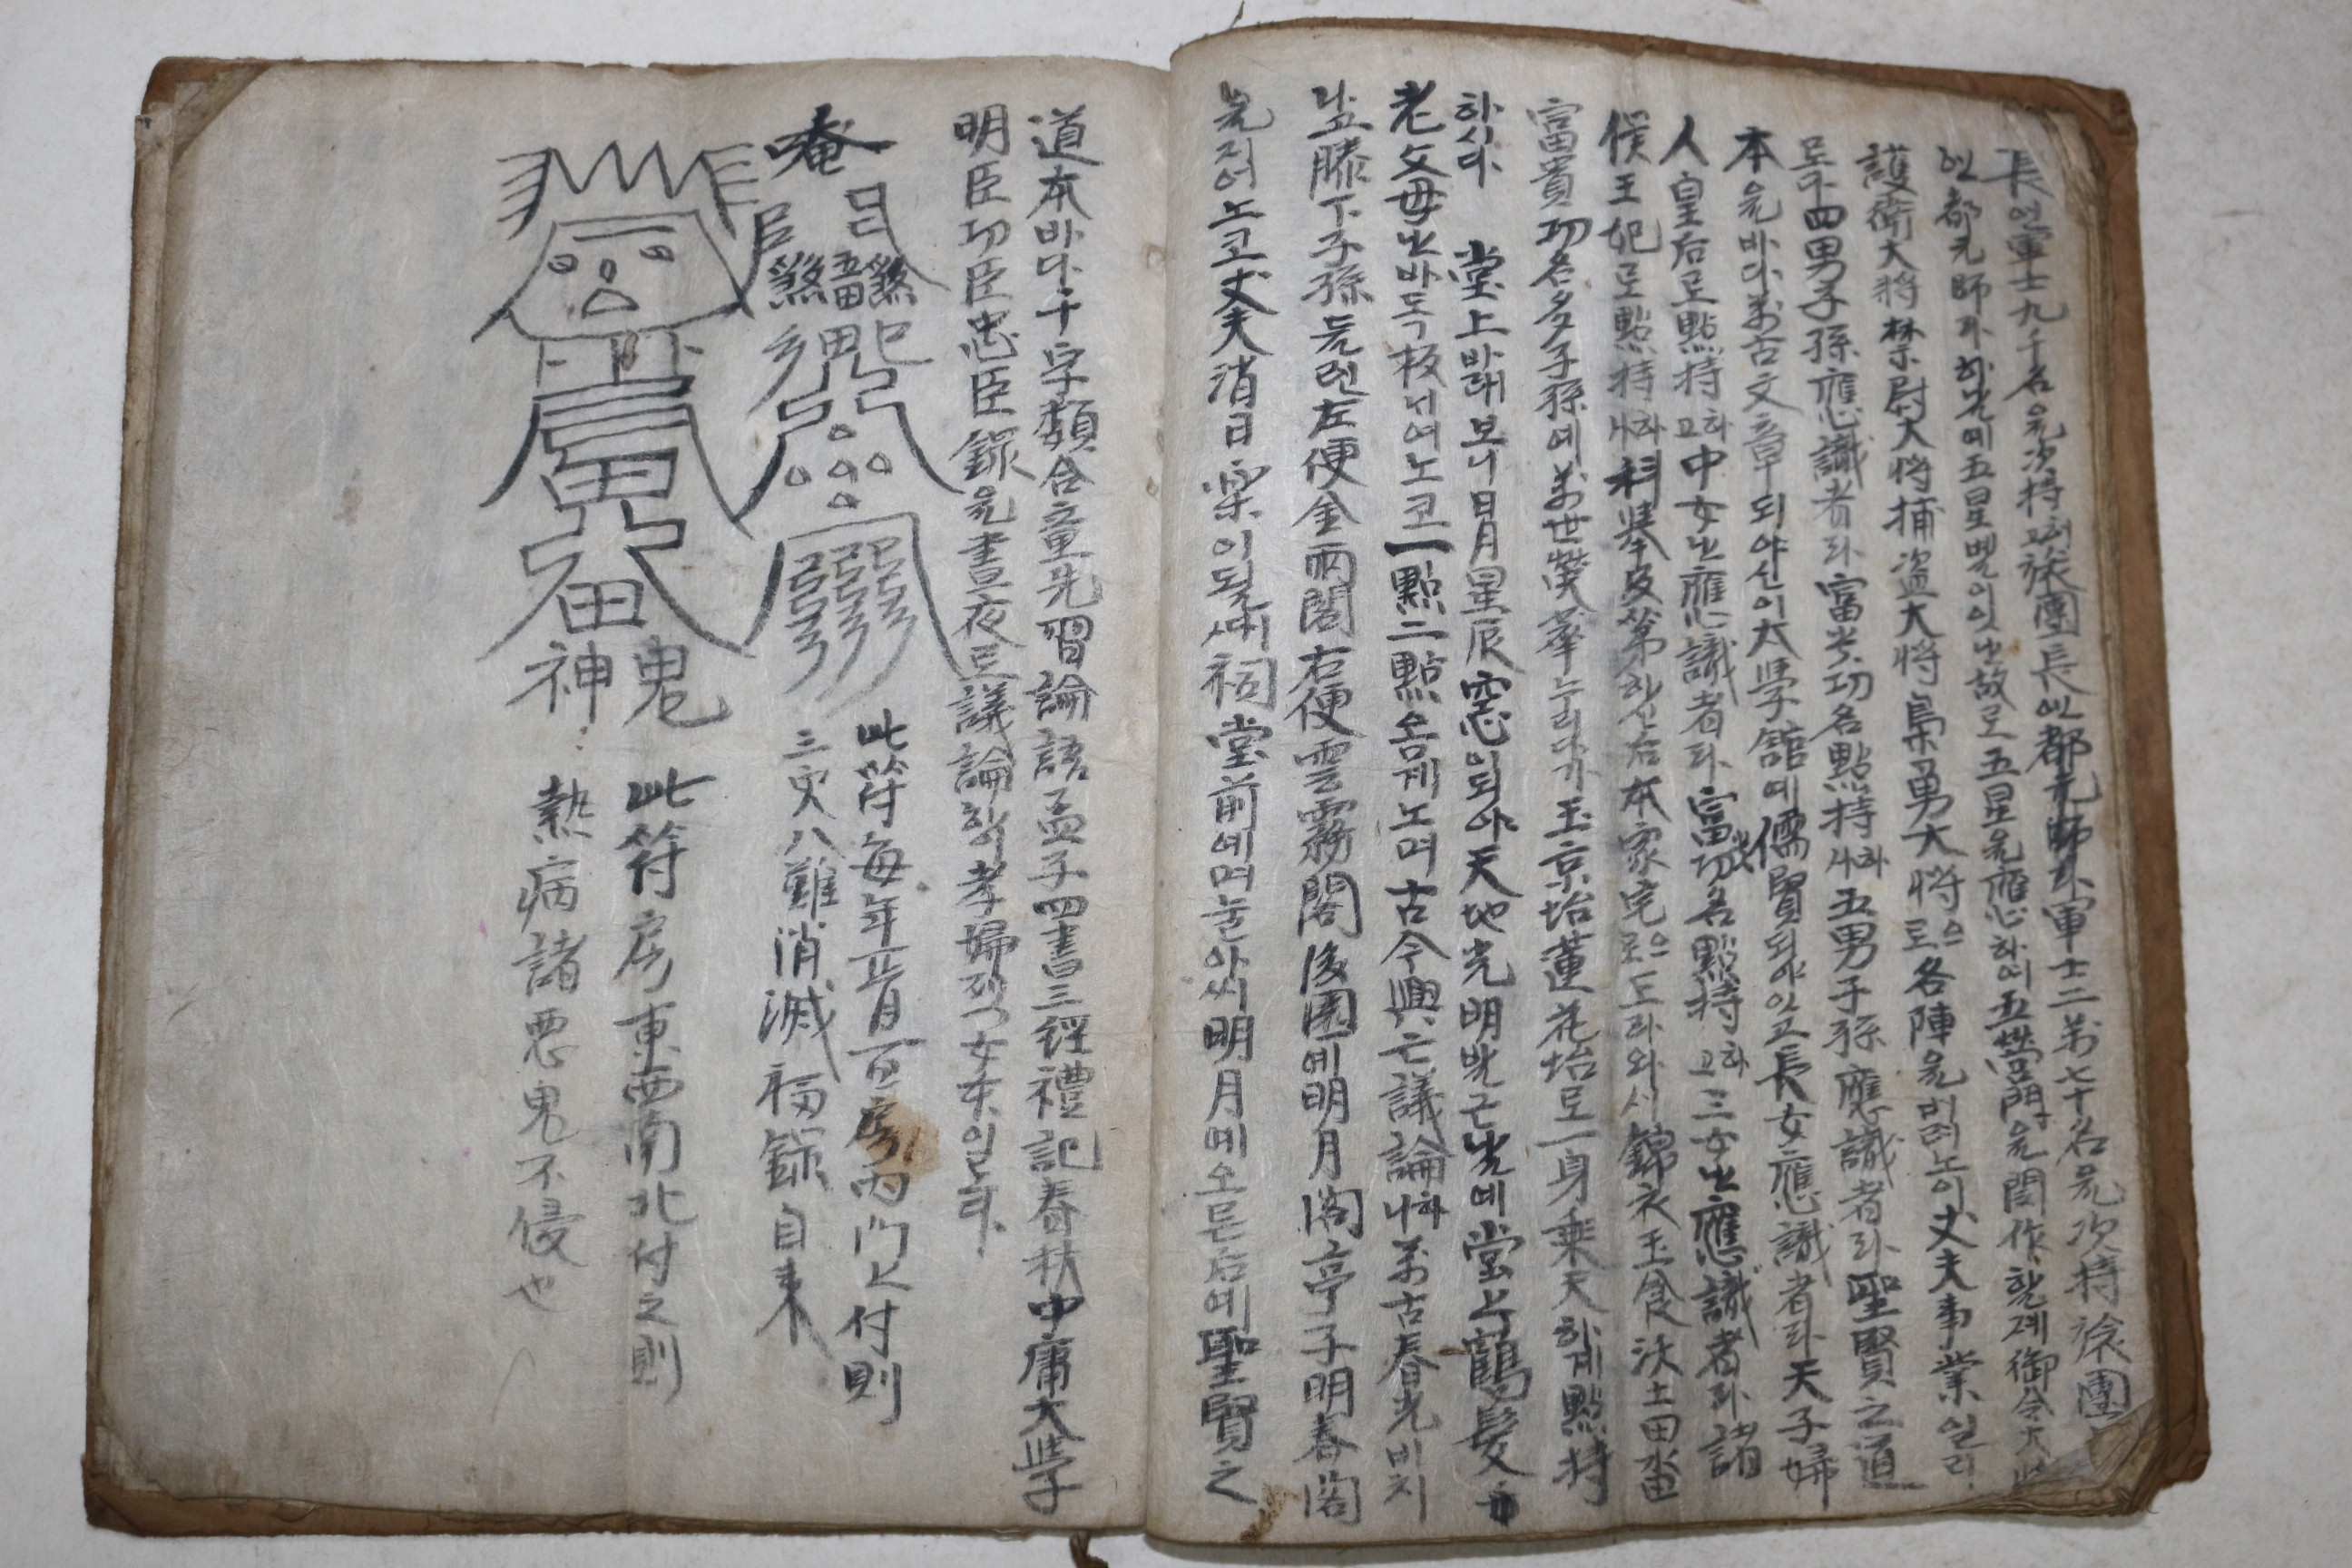 長언軍士九千名은次持하고旅團長언都元帥라軍士二萬七千名은次持旅團
언都元帥라하는예五星벨이잇는故로五星은應하여五營門은開作할제御令大
護衛大將禁尉大將捕盜大將梟勇大將으로各陣은버려노이丈夫事業일리
로다四男子孫應識者라富貴功名點持하사五男子孫應識者라聖賢之道
本은바다萬古文章되야신이太學舘에儒賢되야잇고長女應識者라天子婦
人皇后로點持하고中女는應識者라富貴功名點持하고三女는應識者라諸
候王妃로點持하사科擧及第하신后本家宅으로도라와서錦衣玉食沃土田畓
富貴功名多子孫에萬世榮華누리다가玉京坮蓮花坮로一身乘天하게點持
하시다 堂上바래보니日月星辰窓이되야天地光明발근빛예堂上鶴髮
老父母는바독板너여노코一點二點옴게노며古今興亡議論하니萬古春光비치
라고膝下子孫른련左便金雨閣右便雲霧閣後園에明月閣亭子明春閣
은지어노코丈夫消日樂이될제祠堂前예며눌아씨明月에오른后예聖賢之
道本바다千字類合童先習論語孟子四書三經禮記春秋中庸大學
明臣功臣忠臣錄은晝夜로議論하여孝婦烈女本일너라
唵
此符每年正月一日房內門上付則
三灾八難消滅福錄自來
鬼
神
此符房東西南北付之則
熱病諸惡鬼不侵也